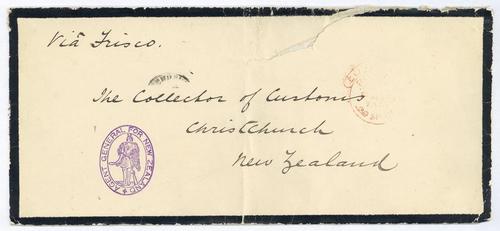 Via Frisco.
The Collector of Customs
Christchurch
New Zealand
AGENT GENERAL FOR NEW ZEALAND